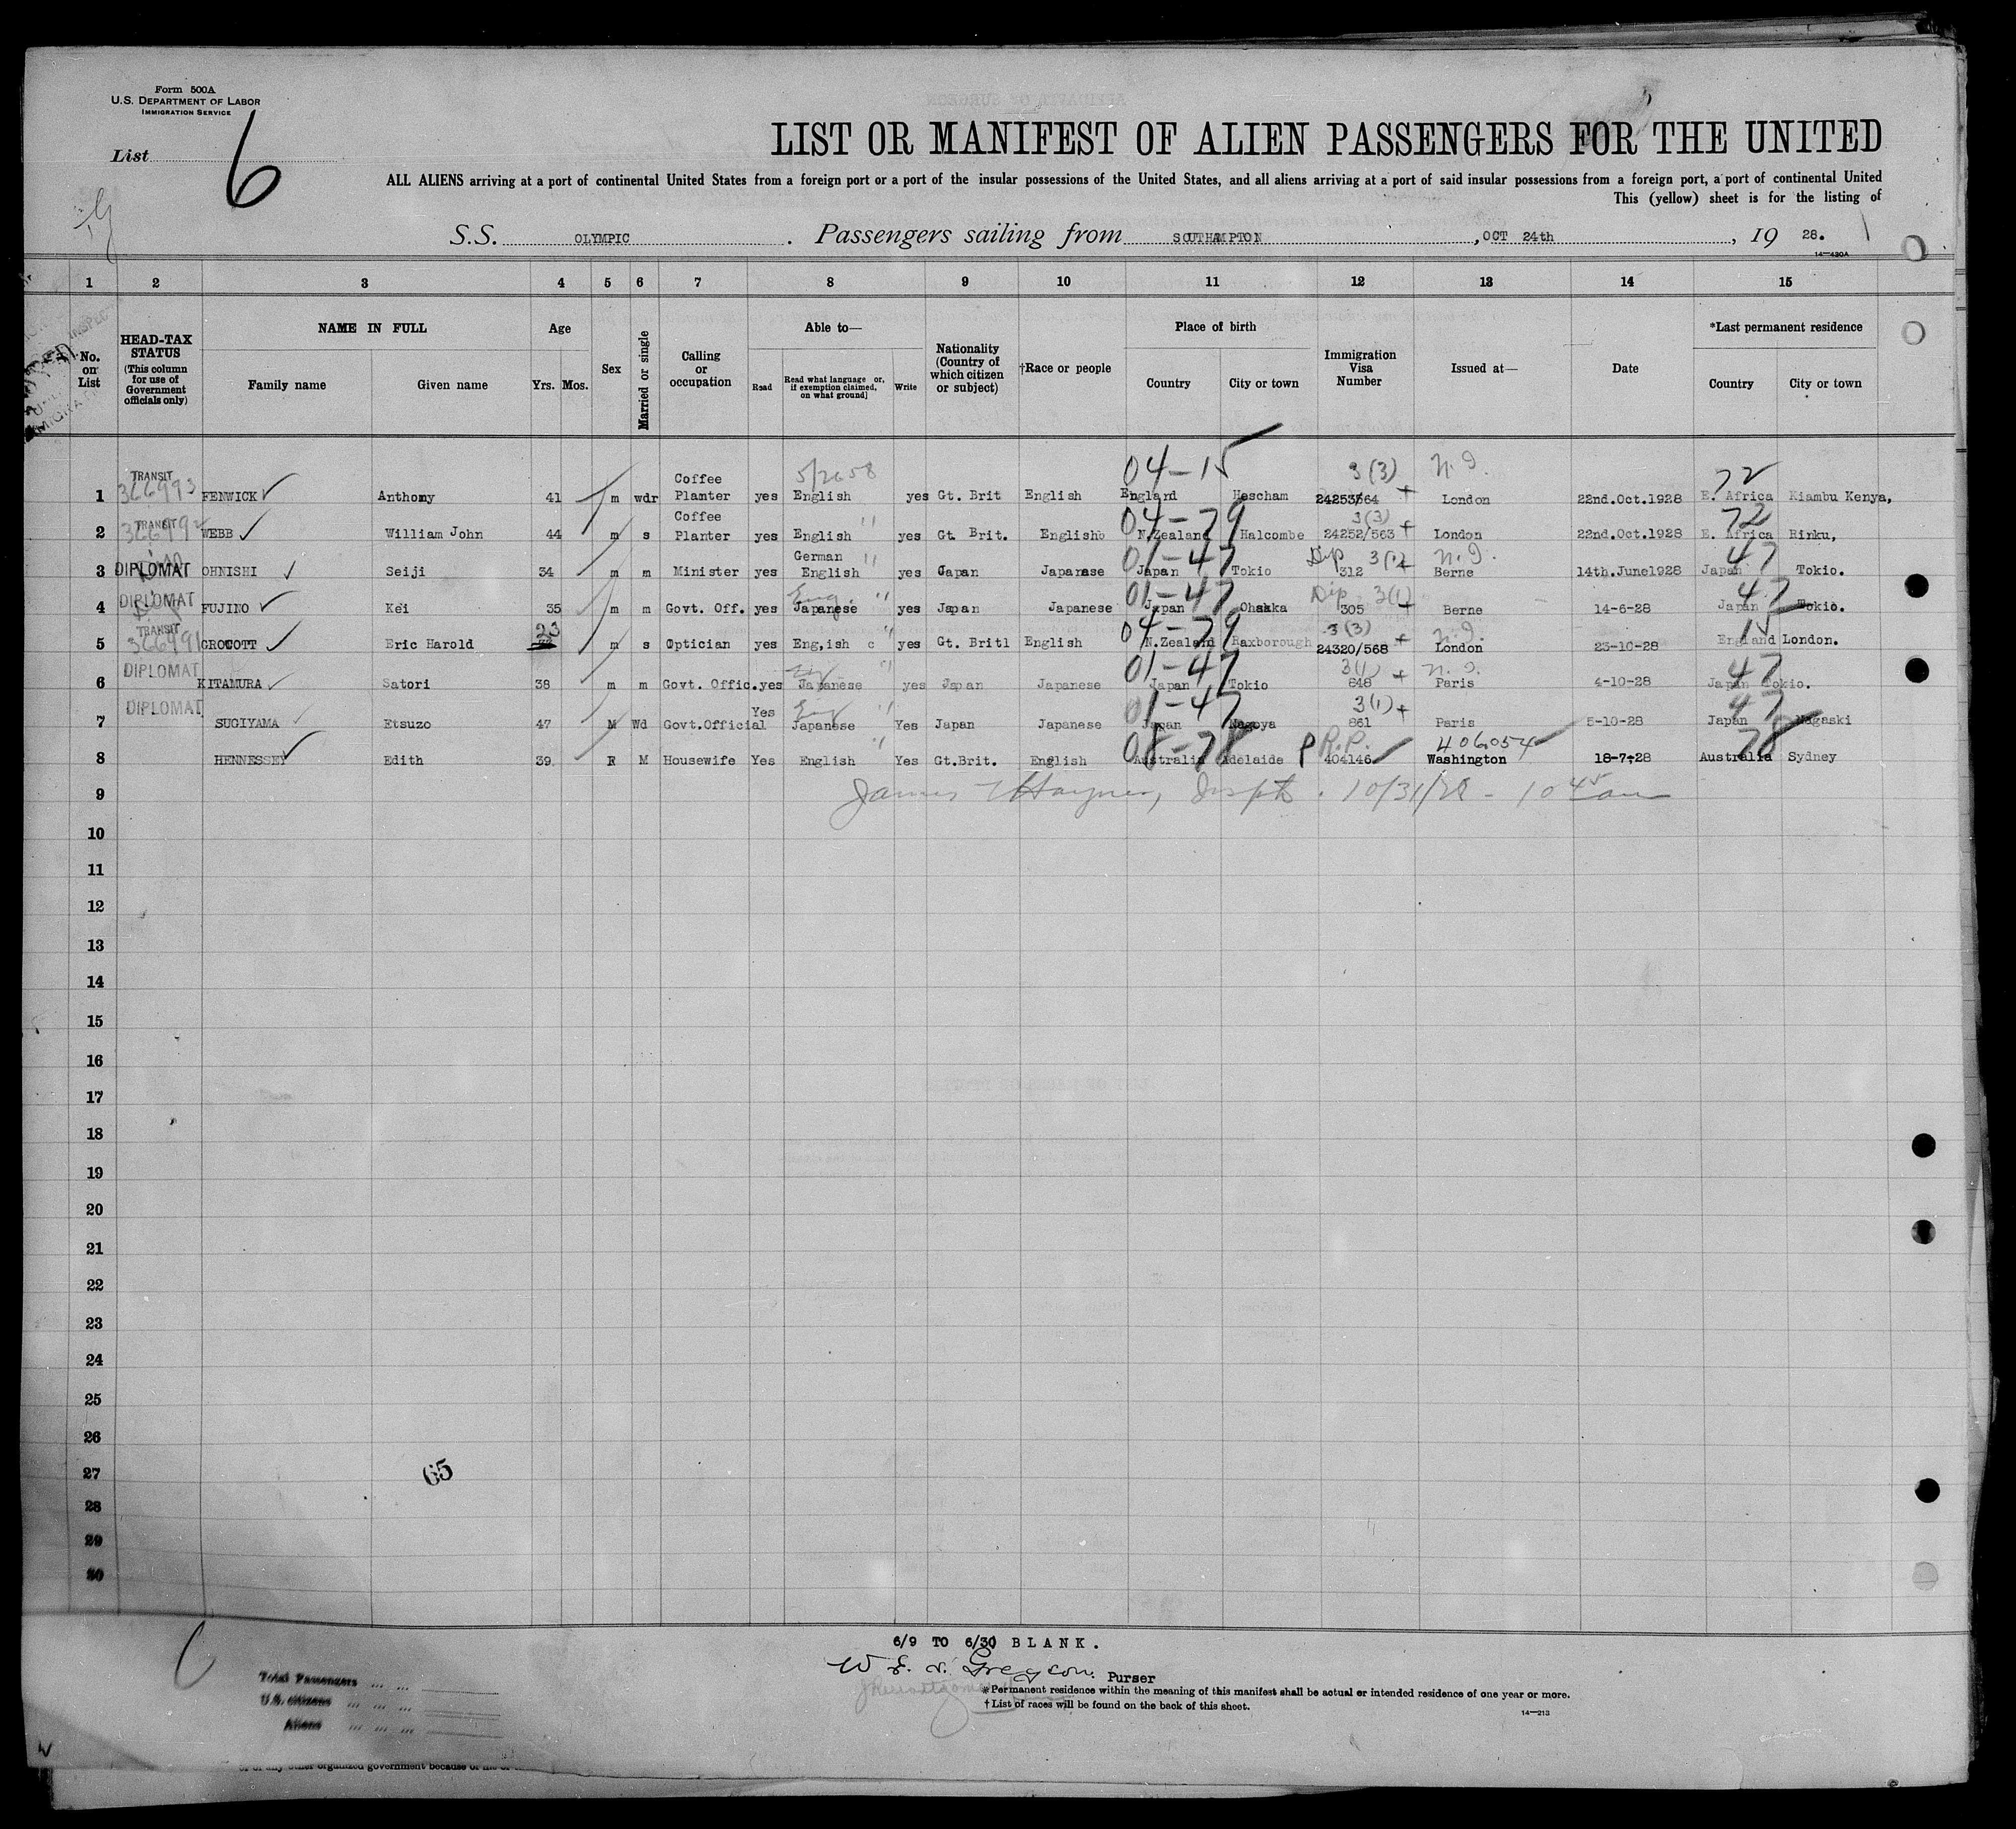 Form 500A
U.S. DEPARTMENT OF LABOR
IMMIGRATION SERVICE
List 6
LIST OR MANIFEST OF ALIEN PASSENGERS FOR THE UNITED
ALL ALIENS arriving at a port of continental United States from a foreign port or a port of the insular possessions of the United States, and all aliens arriving at a port of said insular possessions from a foreign port, a port of continental United
This (yellow) sheet is for the listing of
S.S. OLYMPIC . Passengers sailing from SOUTHAMPTON , OCT 24th , 19 28.
14—430A
1 2 3 4 5 6 7 8 9 10 11 12 13 14 15
No. on List
HEAD-TAX STATUS (This column for use of Government officials only)
NAME IN FULL
Family name Given name
Age
Yrs. Mos.
Sex
Married or single
Calling or occupation
Able to—
Read Read what language or, if exemption claimed, on what ground] Write
Nationality (Country of which citizen or subject)
†Race or people
Place of birth
Country City or town
Immigration Visa Number
Issued at—
Date
*Last permanent residence
Country City or town
TRANSIT Coffee 5/2658 04-15 3(3) N.I. 72
1 366993 FENWICK Anthony 41 m wdr Planter yes English yes Gt. Brit English England Hescham 24253/564 + London 22nd.Oct.1928 E. Africa Kiambu Kenya,
TRANSIT Coffee " 04-79 3(3) 72
2 WEBB William John 44 m s Planter yes English yes Gt. Brit. English N.Zealand Halcombe 24252/563 + London 22nd.Oct.1928 E. Africa Hinku,
German " 01-47 Dip 3(1) N.I. 47
3 DIPLOMAT OHNISHI Seiji 34 m m Minister yes English yes Japan Japanese Japan Tokio 312 Berne 14th.June1928 Japan Tokio.
DIPLOMAT Eng. " 01-47 Dip 3(1) 47
4 FUJINO Kei 35 m m Govt. Off. yes Japanese yes Japan Japanese Japan Ohsakka 305 Berne 14-6-28 Japan Tokio.
TRANSIT 23 " 04-79 3(3) N.I. 15
5 366991 GROCOTT Eric Harold m s Optician yes Eng,ish c yes Gt. Britl English N.Zealand Raxborough 24320/568 + London 23-10-28 England London.
DIPLOMAT Eng " 01-47 3(1) N.I. 47
6 KITAMURA Satori 38 m m Govt. Offic. yes Japanese yes Japan Japanese Japan Tokio 848 + Paris 4-10-28 Japan Tokio.
DIPLOMAT Yes Eng " 01-47 3(1)+ 47
7 SUGIYAMA Etsuzo 47 M Wd Govt.Official Japanese Yes Japan Japanese Japan Nagoya 861 Paris 5-10-28 Japan Nagaski
" 08-78 P R.P. 406054 78
8 HENNESSEY Edith 39 F M Housewife Yes English Yes Gt.Brit. English Australia Adelaide 404146 Washington 18-7-28 Australia Sydney
9 10/31/28 - 10 45 am
10
11
12
13
14
15
16
17
18
19
20
21
22
23
24
25
26
27 65
28
29
30
6/9 TO 6/30 BLANK.
Purser
Total Passengers
U.S. citizens
Aliens
*Permanent residence within the meaning of this manifest shall be actual or intended residence of one year or more.
†List of races will be found on the back of this sheet.
14—213
any other organized government because of